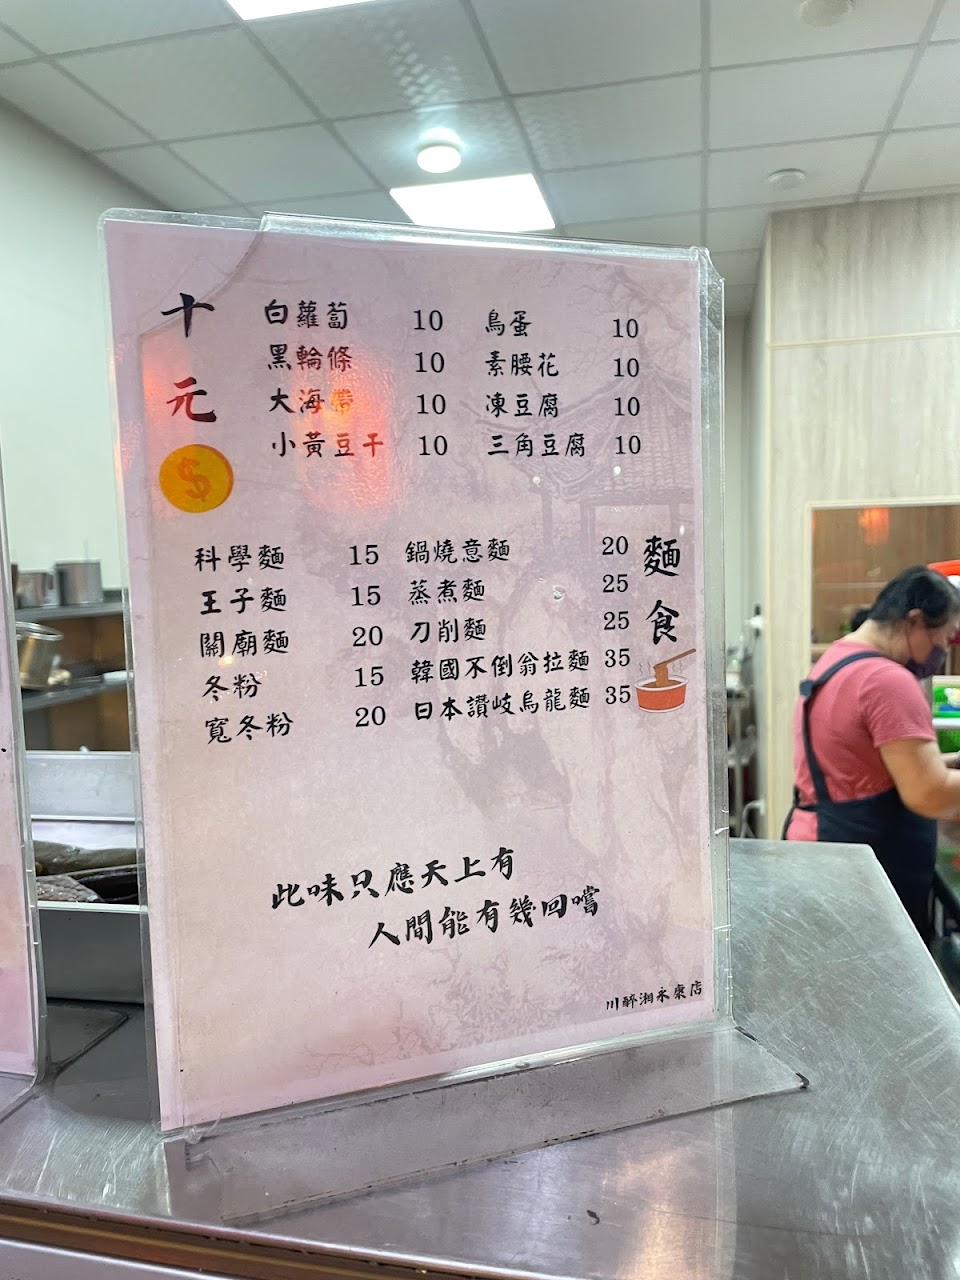 十元
$
白蘿蔔 10 鳥蛋 10
黑輪條 10 素腰花 10
大海帶 10 凍豆腐 10
小黃豆干 10 三角豆腐 10
麵食
科學麵 15 鍋燒意麵 20
王子麵 15 蒸煮麵 25
關廟麵 20 刀削麵 25
冬粉 15 韓國不倒翁拉麵 35
寬冬粉 20 日本讚岐烏龍麵 35
此味只應天上有
人間能有幾回嚐
川醉湘永康店